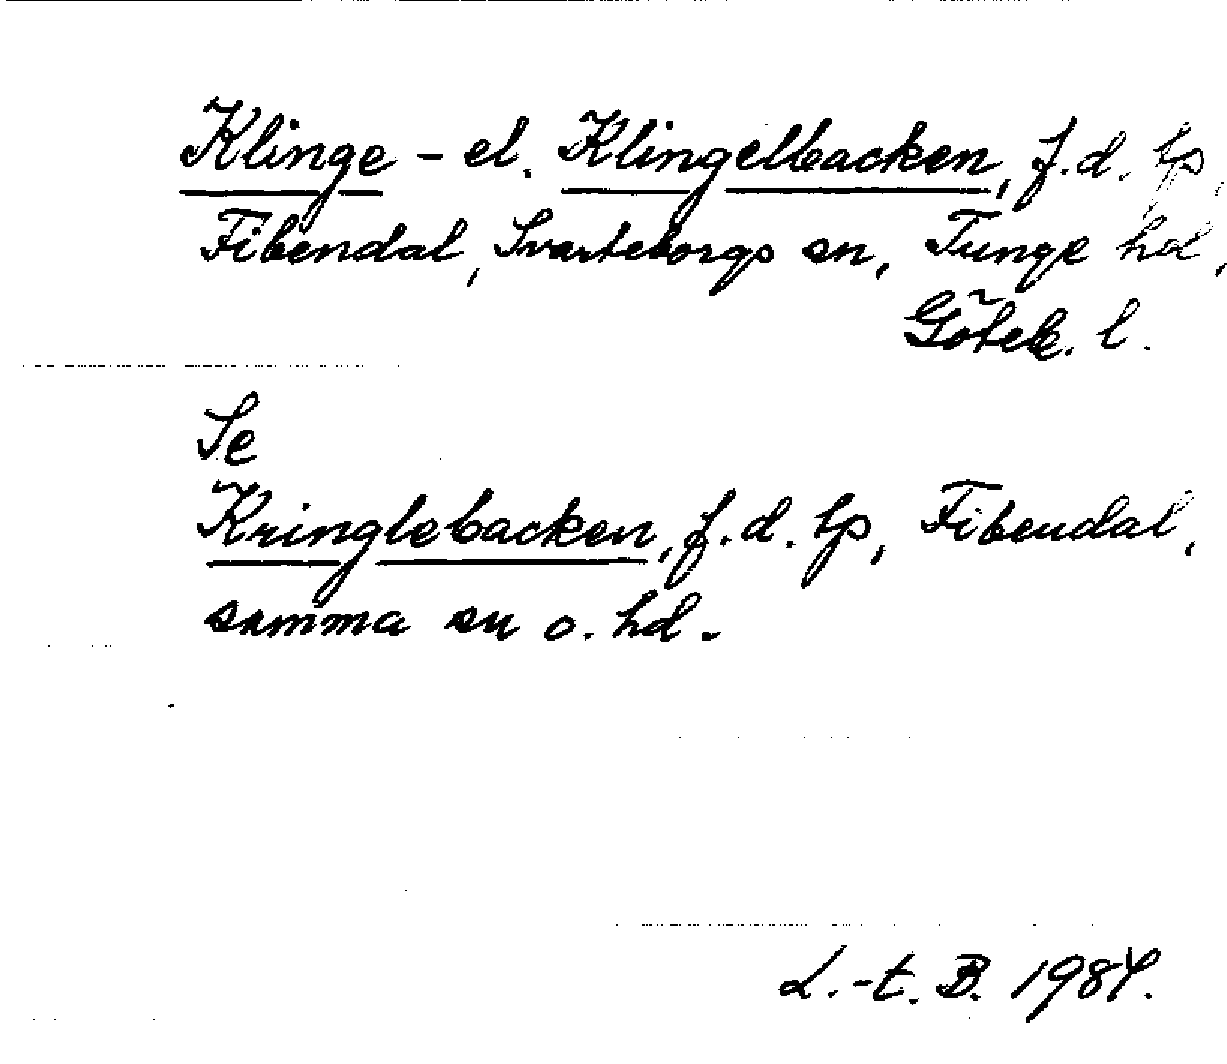 Klinge - el. Klingelbacken, f.d. tp,
Fibendal, Svarteborgs sn, Tunge hd,
Göteb. l.
Se
Kringlebacken, f.d. tp, Fibendal,
samma sn o. hd.
L.-t. B. 1984.